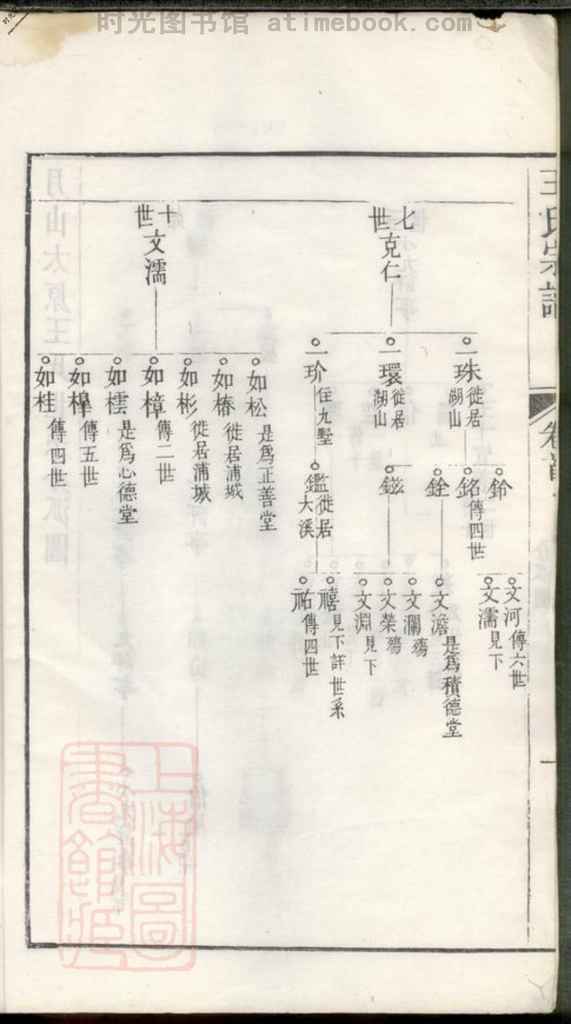 时光图书馆 atimebook.com
王氏宗譜
卷首
七世 克仁
一珠 徙居湖山
一環 徙居湖山
一玠 住九墅
鈴
銘 傳四世
銓
鎡
鑑 徙居大溪
文河 傳六世
文濡 見下
文澹 是爲積德堂
文瀾 殤
文榮 殤
文淵 見下
禧 見下詳世系
祐 傳四世
十世 文濡
如松 是爲正善堂
如椿 徙居浦城
如彬 徙居浦城
如樟 傳二世
如橒 是爲心德堂
如槹 傳五世
如桂 傳四世
上海圖書館藏